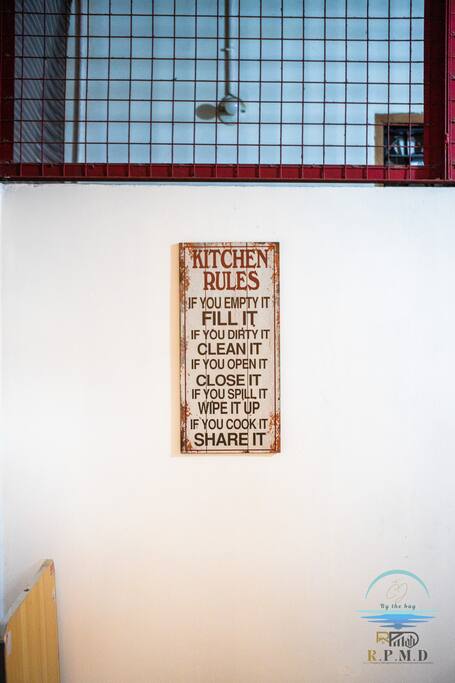 KITCHEN
RULES
IF YOU EMPTY IT
FILL IT
IF YOU DIRTY IT
CLEAN IT
IF YOU OPEN IT
CLOSE IT
IF YOU SPILL IT
WIPE IT UP
IF YOU COOK IT
SHARE IT
By the bay
R.P.M.D